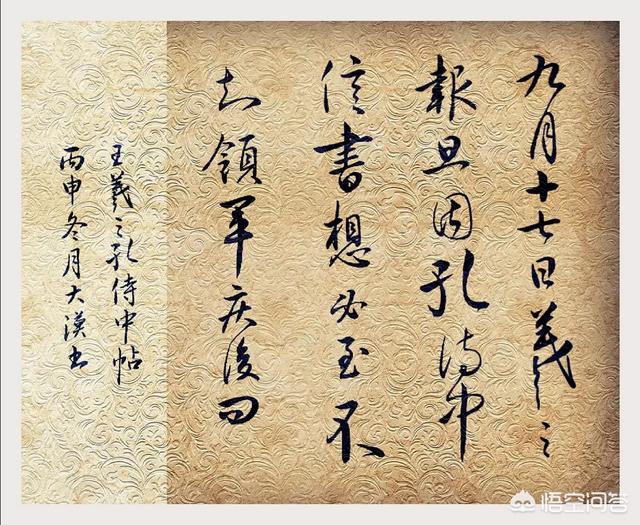 九月十七日羲之
報且因孔侍中
信書想必至不
知領軍疾後問
王羲之孔侍中帖
丙申冬月大漠书
悟空问答